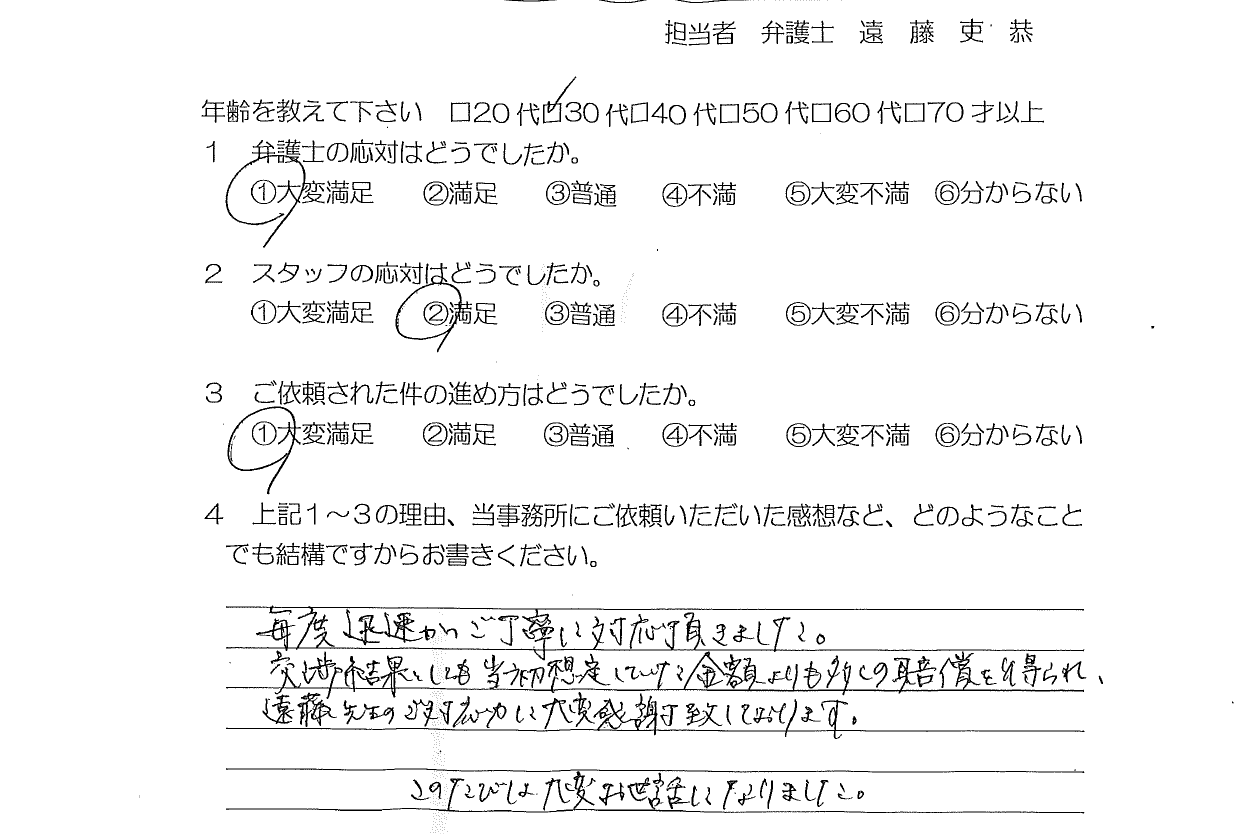 担当者 弁護士 遠藤吏恭
年齢を教えて下さい □20代☑30代□40代□50代□60代□70才以上
1 弁護士の応対はどうでしたか。
①大変満足 ②満足 ③普通 ④不満 ⑤大変不満 ⑥分からない
2 スタッフの応対はどうでしたか。
①大変満足 ②満足 ③普通 ④不満 ⑤大変不満 ⑥分からない
3 ご依頼された件の進め方はどうでしたか。
①大変満足 ②満足 ③普通 ④不満 ⑤大変不満 ⑥分からない
4 上記1～3の理由、当事務所にご依頼いただいた感想など、どのようなこと
でも結構ですからお書きください。
毎度迅速かつご丁寧に対応頂きました。
交渉結果としても当初想定していた金額よりも多くの賠償を得られ、
遠藤先生のご対応力に大変感謝致しております。
このたびは大変お世話になりました。